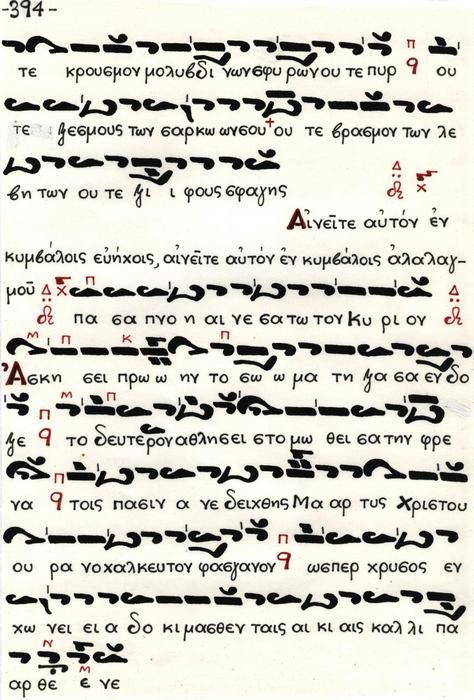 -394-
τε κρουσμον μολυβδι νων σφυ ρων ου τε πυρ π q ου
τε ξεσμους των σαρκω ων σου + ου τε βρασμον των λε
βη των ου τε ξι ι φους σφαγης Δ χ
Αἰνεῖτε αὐτόν ἐν
κυμβάλοις εὐήχοις, αἰνεῖτε αὐτόν ἐν κυμβάλοις ἀλαλαγ-
μοῦ Δ χ π
πα σα πνο η αι νε σα τω τον Κυ ρι ον Δ
Μ π κ π
Ἀσκη σει πρω ω ην το σω ω μα τη ξα σα εν δο
ξε π q Μ π το δευτερον αθλησει στο μω θει σα την φρε
να π q τοις πασιν α νε δειχθης Μα αρ τυς Χριστου
ου ρα νο χαλκευτον φασγανον π q ωσπερ χρυσος εν
χω νει ει α δο κι μασθεν ταις αι κι αις καλ λι πα
Ν Μ
αρ θε ε νε